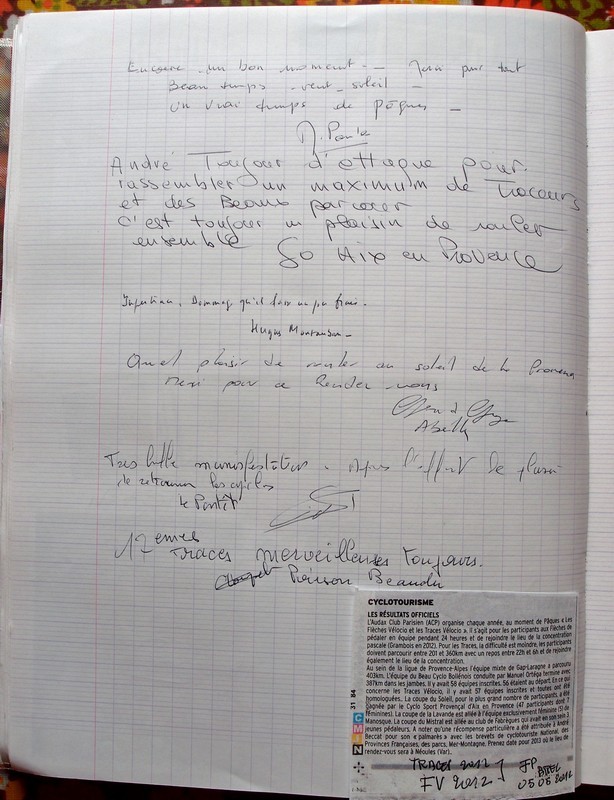 Encore un bon moment - Merci pour tout
Beau temps - vent - soleil -
Un vrai temps de pâques -
André Toujour d'attaque pour
rassembler un maximum de Traceurs
et des Beaux parcour
c'est toujour un plaisir de rouler
ensemble Go Aix en Provence
Dommage qu'il fasse un peu frais.
Hugues
Quel plaisir de rouler au soleil de la Provence
merci pour ce Rendez-vous
Très belle manifestation. Après l'effort le plaisir
de retrouver les cyclos
Le Pontet
17 emes
Traces merveilleuses Toujours.
CYCLOTOURISME
LES RÉSULTATS OFFICIELS
L'Audax Club Parisien (ACP) organise chaque année, au moment de Pâques « Les
Flèches Vélocio et les Traces Vélocio ». Il s'agit pour les participants aux Flèches de
pédaler en équipe pendant 24 heures et de rejoindre le lieu de la concentration
pascale (Grambois en 2012). Pour les Traces, la difficulté est moindre, les participants
doivent parcourir entre 201 et 360km avec un repos entre 22h et 6h et de rejoindre
également le lieu de la concentration.
Au sein de la ligue de Provence-Alpes l'équipe mixte de Gap-Laragne a parcouru
403km. L'équipe du Beau Cyclo Bollénois conduite par Manuel Ortéga termine avec
387km dans les jambes. Il y avait 58 équipes inscrites. 56 étaient au départ. En ce qui
concerne les Traces Vélocio, il y avait 57 équipes inscrites et toutes ont été
homologuées. La coupe du Soleil, pour le plus grand nombre de participants, a été
gagnée par le Cyclo Sport Provençal d'Aix en Provence (47 participants dont 7
féminines). La coupe de la Lavande est allée à l'équipe exclusivement féminine (5) de
Manosque. La coupe du Mistral est allée au club de Fabrègues qui avait en son sein 3
jeunes pédaleurs. A noter qu'une récompense particulière a été attribuée à André
Beccat pour son « palmarès » avec les brevets de cyclotouriste National, des
Provinces Françaises, des parcs, Mer-Montagne. Prenez date pour 2013 où le lieu de
rendez-vous sera à Néoules (Var).
31 84
C
M
J
N
TRACES 2012
FV 2012
05 05 2012